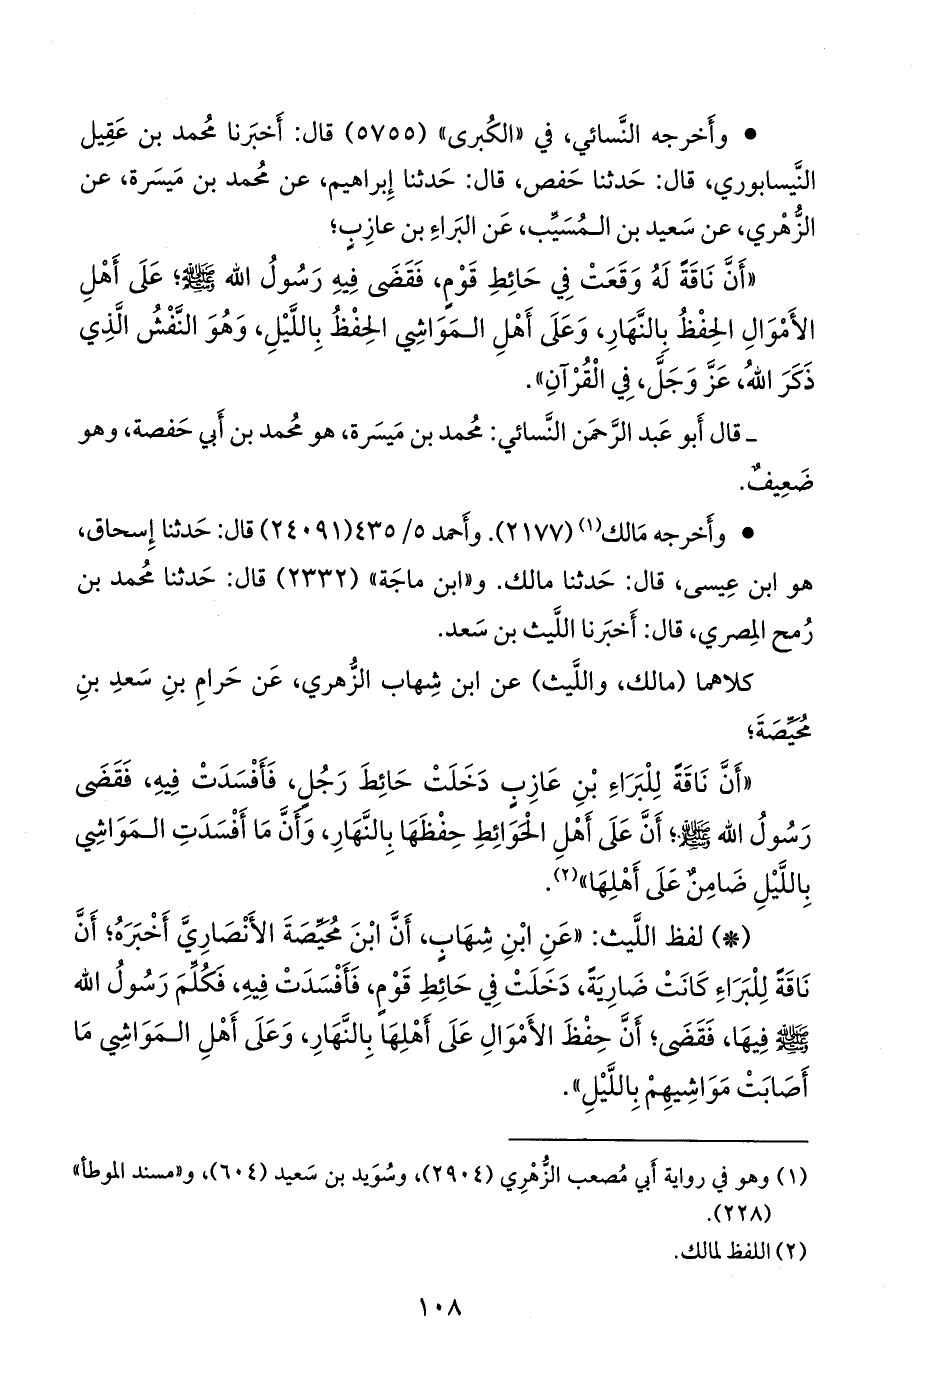 • وأَخرجه النَّسائي، في «الكُبرى» (٥٧٥٥) قال: أَخبَرنا مُحمد بن عَقِيل
النَّيسابوري، قال: حَدثنا حَفص، قال: حَدثنا إِبراهيم، عن مُحمد بن مَيسَرة، عن
الزُّهْري، عن سَعيد بن المُسَيِّب، عَن البَراءِ بن عازِبٍ؛
«أَنَّ نَاقَةً لَهُ وَقَعَتْ فِي حَائِطِ قَوْمٍ، فَقَضَى فِيهِ رَسُولُ الله ﷺ؛ عَلَى أَهْلِ
الأَمْوَالِ الحِفْظُ بِالنَّهَارِ، وَعَلَى أَهْلِ المَوَاشِي الحِفْظُ بِاللَّيْلِ، وَهُوَ النَّفْشُ الَّذِي
ذَكَرَ اللهُ، عَزَّ وَجَلَّ، فِي الْقُرْآنِ».
ـ قال أَبو عَبد الرَّحمَن النَّسائي: مُحمد بن مَيسَرة، هو مُحمد بن أَبي حَفصة، وهو
ضَعِيفٌ.
• وأَخرجه مَالك(١) (٢١٧٧). وأَحمد ٥/ ٤٣٥(٢٤٠٩١) قال: حَدثنا إِسحاق،
هو ابن عِيسى، قال: حَدثنا مالك. و«ابن ماجَة» (٢٣٣٢) قال: حَدثنا مُحمد بن
رُمح المِصري، قال: أَخبَرنا اللَّيث بن سَعد.
كلاهما (مالك، واللَّيث) عن ابن شِهاب الزُّهري، عَن حَرامِ بنِ سَعدِ بنِ
مُحَيِّصَةَ؛
«أَنَّ نَاقَةً لِلْبَرَاءِ بْنِ عَازِبٍ دَخَلَتْ حَائِطَ رَجُلٍ، فَأَفْسَدَتْ فِيهِ، فَقَضَى
رَسُولُ الله ﷺ؛ أَنَّ عَلَى أَهْلِ الحَوَائِطِ حِفْظَهَا بِالنَّهَارِ، وَأَنَّ مَا أَفْسَدَتِ المَوَاشِي
بِاللَّيْلِ ضَامِنٌ عَلَى أَهْلِهَا»(٢).
(*) لفظ اللَّيث: «عَنِ ابْنِ شِهَابٍ، أَنَّ ابْنَ مُحَيِّصَةَ الأَنْصَارِيَّ أَخْبَرَهُ؛ أَنَّ
نَاقَةً لِلْبَرَاءِ كَانَتْ ضَارِيَةً، دَخَلَتْ فِي حَائِطِ قَوْمٍ، فَأَفْسَدَتْ فِيهِ، فَكُلِّمَ رَسُولُ الله
ﷺ فِيهَا، فَقَضَى؛ أَنَّ حِفْظَ الأَمْوَالِ عَلَى أَهْلِهَا بِالنَّهَارِ، وَعَلَى أَهْلِ المَوَاشِي مَا
أَصَابَتْ مَوَاشِيهِمْ بِاللَّيْلِ».
(١) وهو في رواية أَبي مُصعب الزُّهْرِي (٢٩٠٤)، وسُوَيد بن سَعيد (٦٠٤)، و«مسند الموطأ»
(٢٢٨).
(٢) اللفظ لمالك.
١٠٨